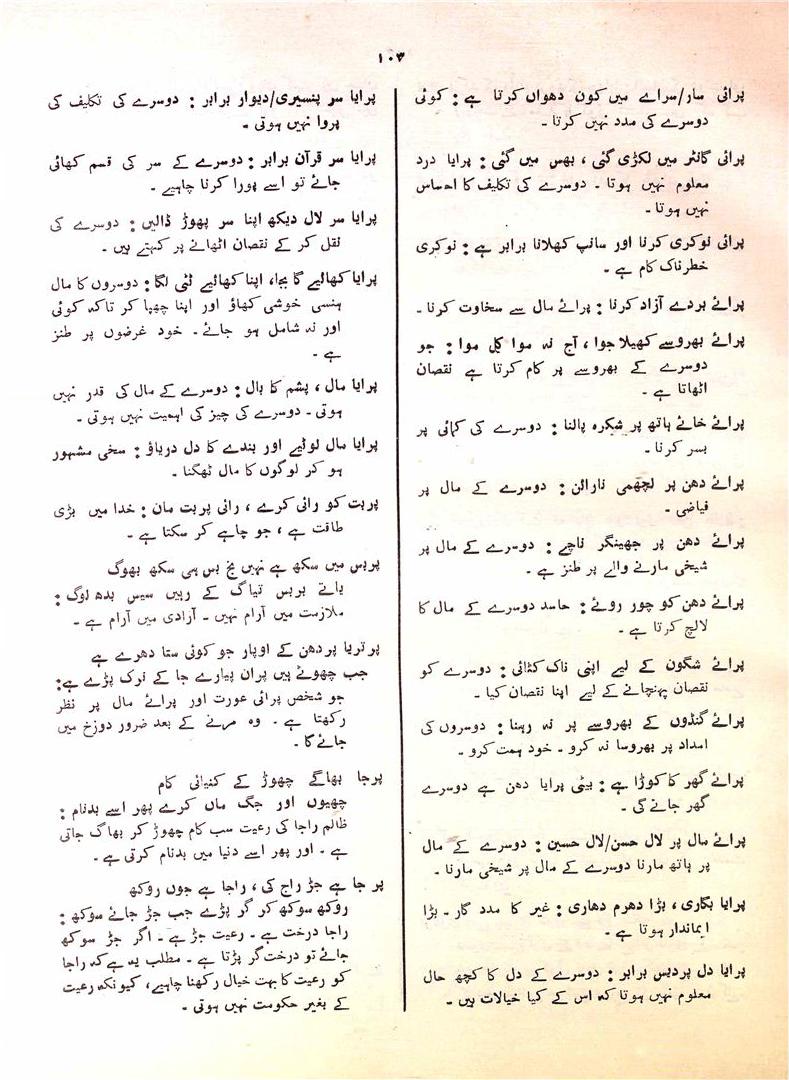 ۱۰۳
پرائی سار/سراے میں کون دھواں کرتا ہے : کوئی
دوسرے کی مدد نہیں کرتا ۔
پرائی گانٹر میں لکڑی گئی ، بھس میں گئی : پرایا درد
معلوم نہیں ہوتا ۔ دوسرے کی تکلیف کا احساس
نہیں ہوتا ۔
پرائی نوکری کرنا اور سانپ کھلانا برابر ہے : نوکری
خطرناک کام ہے ۔
پرائے بردے آزاد کرنا : پرائے مال سے سخاوت کرنا ۔
پرائے بھروسے کھیلا جوا ، آج نہ موا کل موا : جو
دوسرے کے بھروسے پر کام کرتا ہے نقصان
اٹھاتا ہے ۔
پرائے خائے ہاتھ پر شکرہ پالنا : دوسرے کی کمائی پر
بسر کرنا ۔
پرائے دھن پر لچھمی نارائن : دوسرے کے مال پر
فیاضی ۔
پرائے دھن پر جھینگر ناچے : دوسرے کے مال پر
شیخی مارنے والے پر طنز ہے ۔
پرائے دھن کو چور روئے : حاسد دوسرے کے مال کا
لالچ کرتا ہے ۔
پرائے شگون کے لیے اپنی ناک کٹائی : دوسرے کو
نقصان پہنچانے کے لیے اپنا نقصان کیا ۔
پرائے گنڈوں کے بھروسے پر نہ رہنا : دوسروں کی
امداد پر بھروسا نہ کرو ۔ خود ہمت کرو ۔
پرائے گھر کا کوڑا ہے : بیٹی پرایا دھن ہے دوسرے
گھر جائے گی ۔
پرائے مال پر لال حسن/لال حسین : دوسرے کے مال
پر ہاتھ مارنا دوسرے کے مال پر شیخی مارنا ۔
پرایا بگاری ، بڑا دھرم دھاری : غیر کا مدد گار ۔ بڑا
ایماندار ہوتا ہے ۔
پرایا دل پردیس برابر : دوسرے کے دل کا کچھ حال
معلوم نہیں ہوتا کہ اس کے کیا خیالات ہیں ۔
پرایا سر پنسیری/دیوار برابر : دوسرے کی تکلیف کی
پروا نہیں ہوتی ۔
پرایا سر قرآن برابر : دوسرے کے سر کی قسم کھائی
جائے تو اسے پورا کرنا چاہیے ۔
پرایا سر لال دیکھ اپنا سر پھوڑ ڈالیں : دوسرے کی
نقل کر کے نقصان اٹھانے پر کہتے ہیں ۔
پرایا کھائیے گا بجا، اپنا کھائیے ٹٹی لگا : دوسروں کا مال
ہنسی خوشی کھاؤ اور اپنا چھپا کر تاکہ کوئی
اور نہ شامل ہو جائے ۔ خود غرضوں پر طنز
ہے ۔
پرایا مال ، پشم کا بال : دوسرے کے مال کی قدر نہیں
ہوتی ۔ دوسرے کی چیز کی اہمیت نہیں ہوتی ۔
پرایا مال لوٹیے اور بندے کا دل دریاؤ : سخی مشہور
ہو کر لوگوں کا مال ٹھگنا ۔
پربت کو رائی کرے ، رائی پربت مان : خدا میں بڑی
طاقت ہے ، جو چاہے کر سکتا ہے ۔
پربس میں سکھ ہے نہیں نج بس ہی سکھ بھوگ
یاتے پربس تیاگ کے رہیں سیس بدھ لوگ :
ملازمت میں آرام نہیں ۔ آزادی میں آرام ہے ۔
پرتریا پردھن کے اوپار جو کوئی ستا دھرے ہے
جب چھوٹے ہیں پران پیارے جا کے نرک پڑے ہے :
جو شخص پرائی عورت اور پرائے مال پر نظر
رکھتا ہے ۔ وہ مرنے کے بعد ضرور دوزخ میں
جائے گا ۔
پرجا بھاگے چھوڑ کے کنیائی کام
چھیوں اور جگ ماں کرے پھر اسے بدنام :
ظالم راجا کی رعیت سب کام چھوڑ کر بھاگ جاتی
ہے ۔ اور پھر اسے دنیا میں بدنام کرتی ہے ۔
پر جا ہے جڑ راج کی ، راجا ہے جوں روکھ
روکھ سوکھ کر گر پڑے جب جڑ جائے سوکھ :
راجا درخت ہے ۔ رعیت جڑ ہے ۔ اگر جڑ سوکھ
جائے تو درخت گر پڑتا ہے ۔ مطلب یہ ہے کہ راجا
کو رعیت کا بہت خیال رکھنا چاہیے، کیونکہ رعیت
کے بغیر حکومت نہیں ہوتی ۔